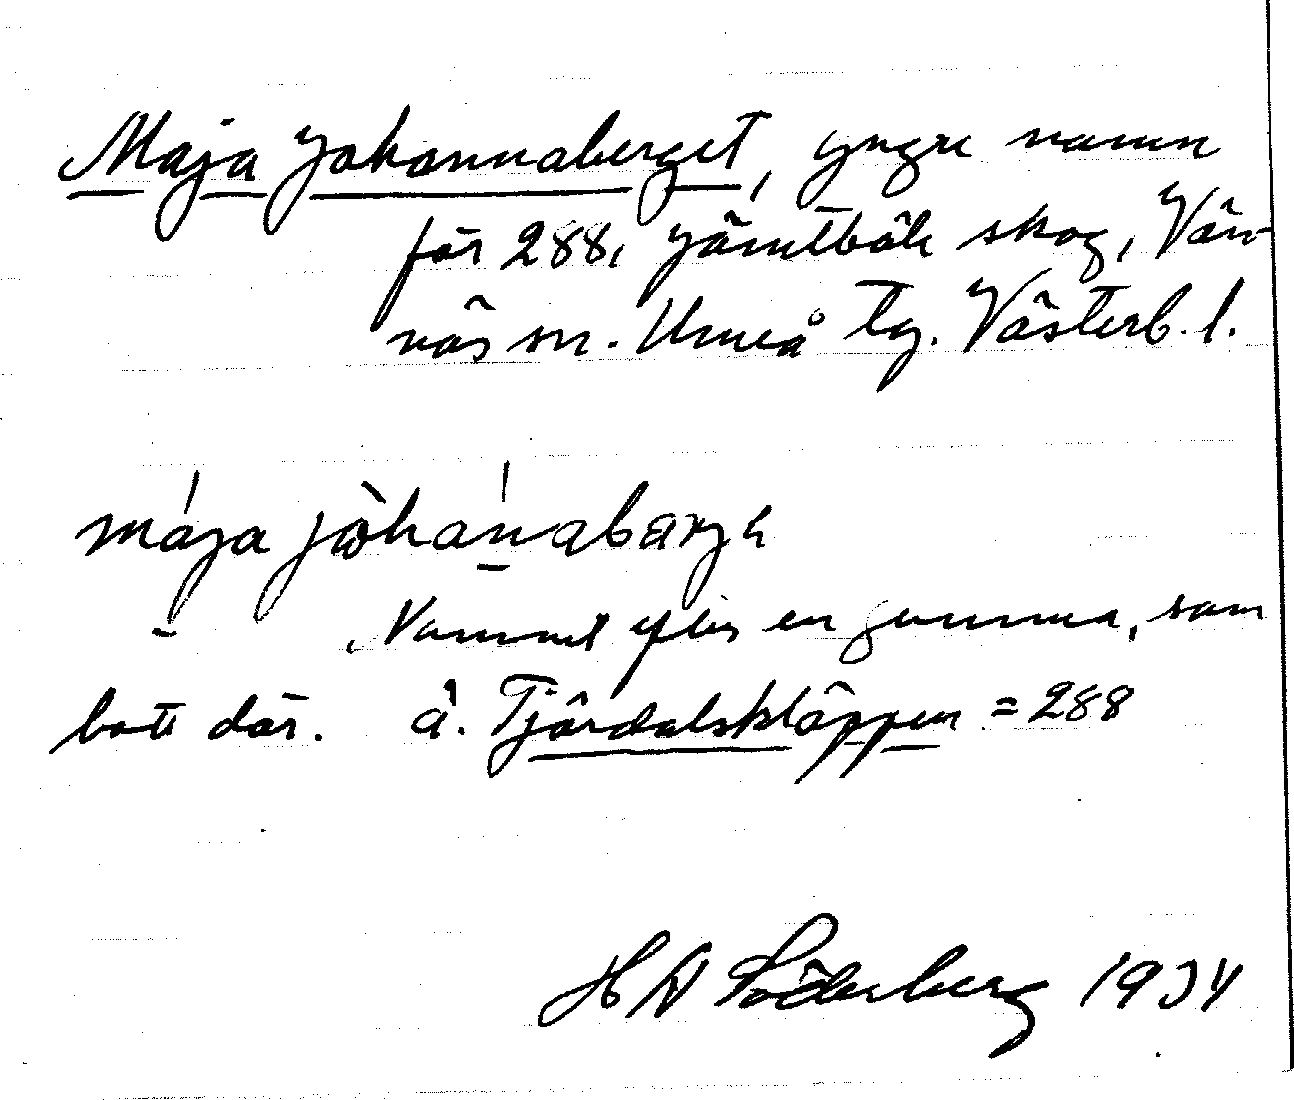 Maja Johannaberget, yngre namn
för 288, Jämtböle skog, Vän-
näs sn. Umeå tg. Västerb. l.
maja jòhanabarjə
Namnet efter en gumma, som
bott där. å. Tjärdalskläppen = 288
H N Söderberg 1934